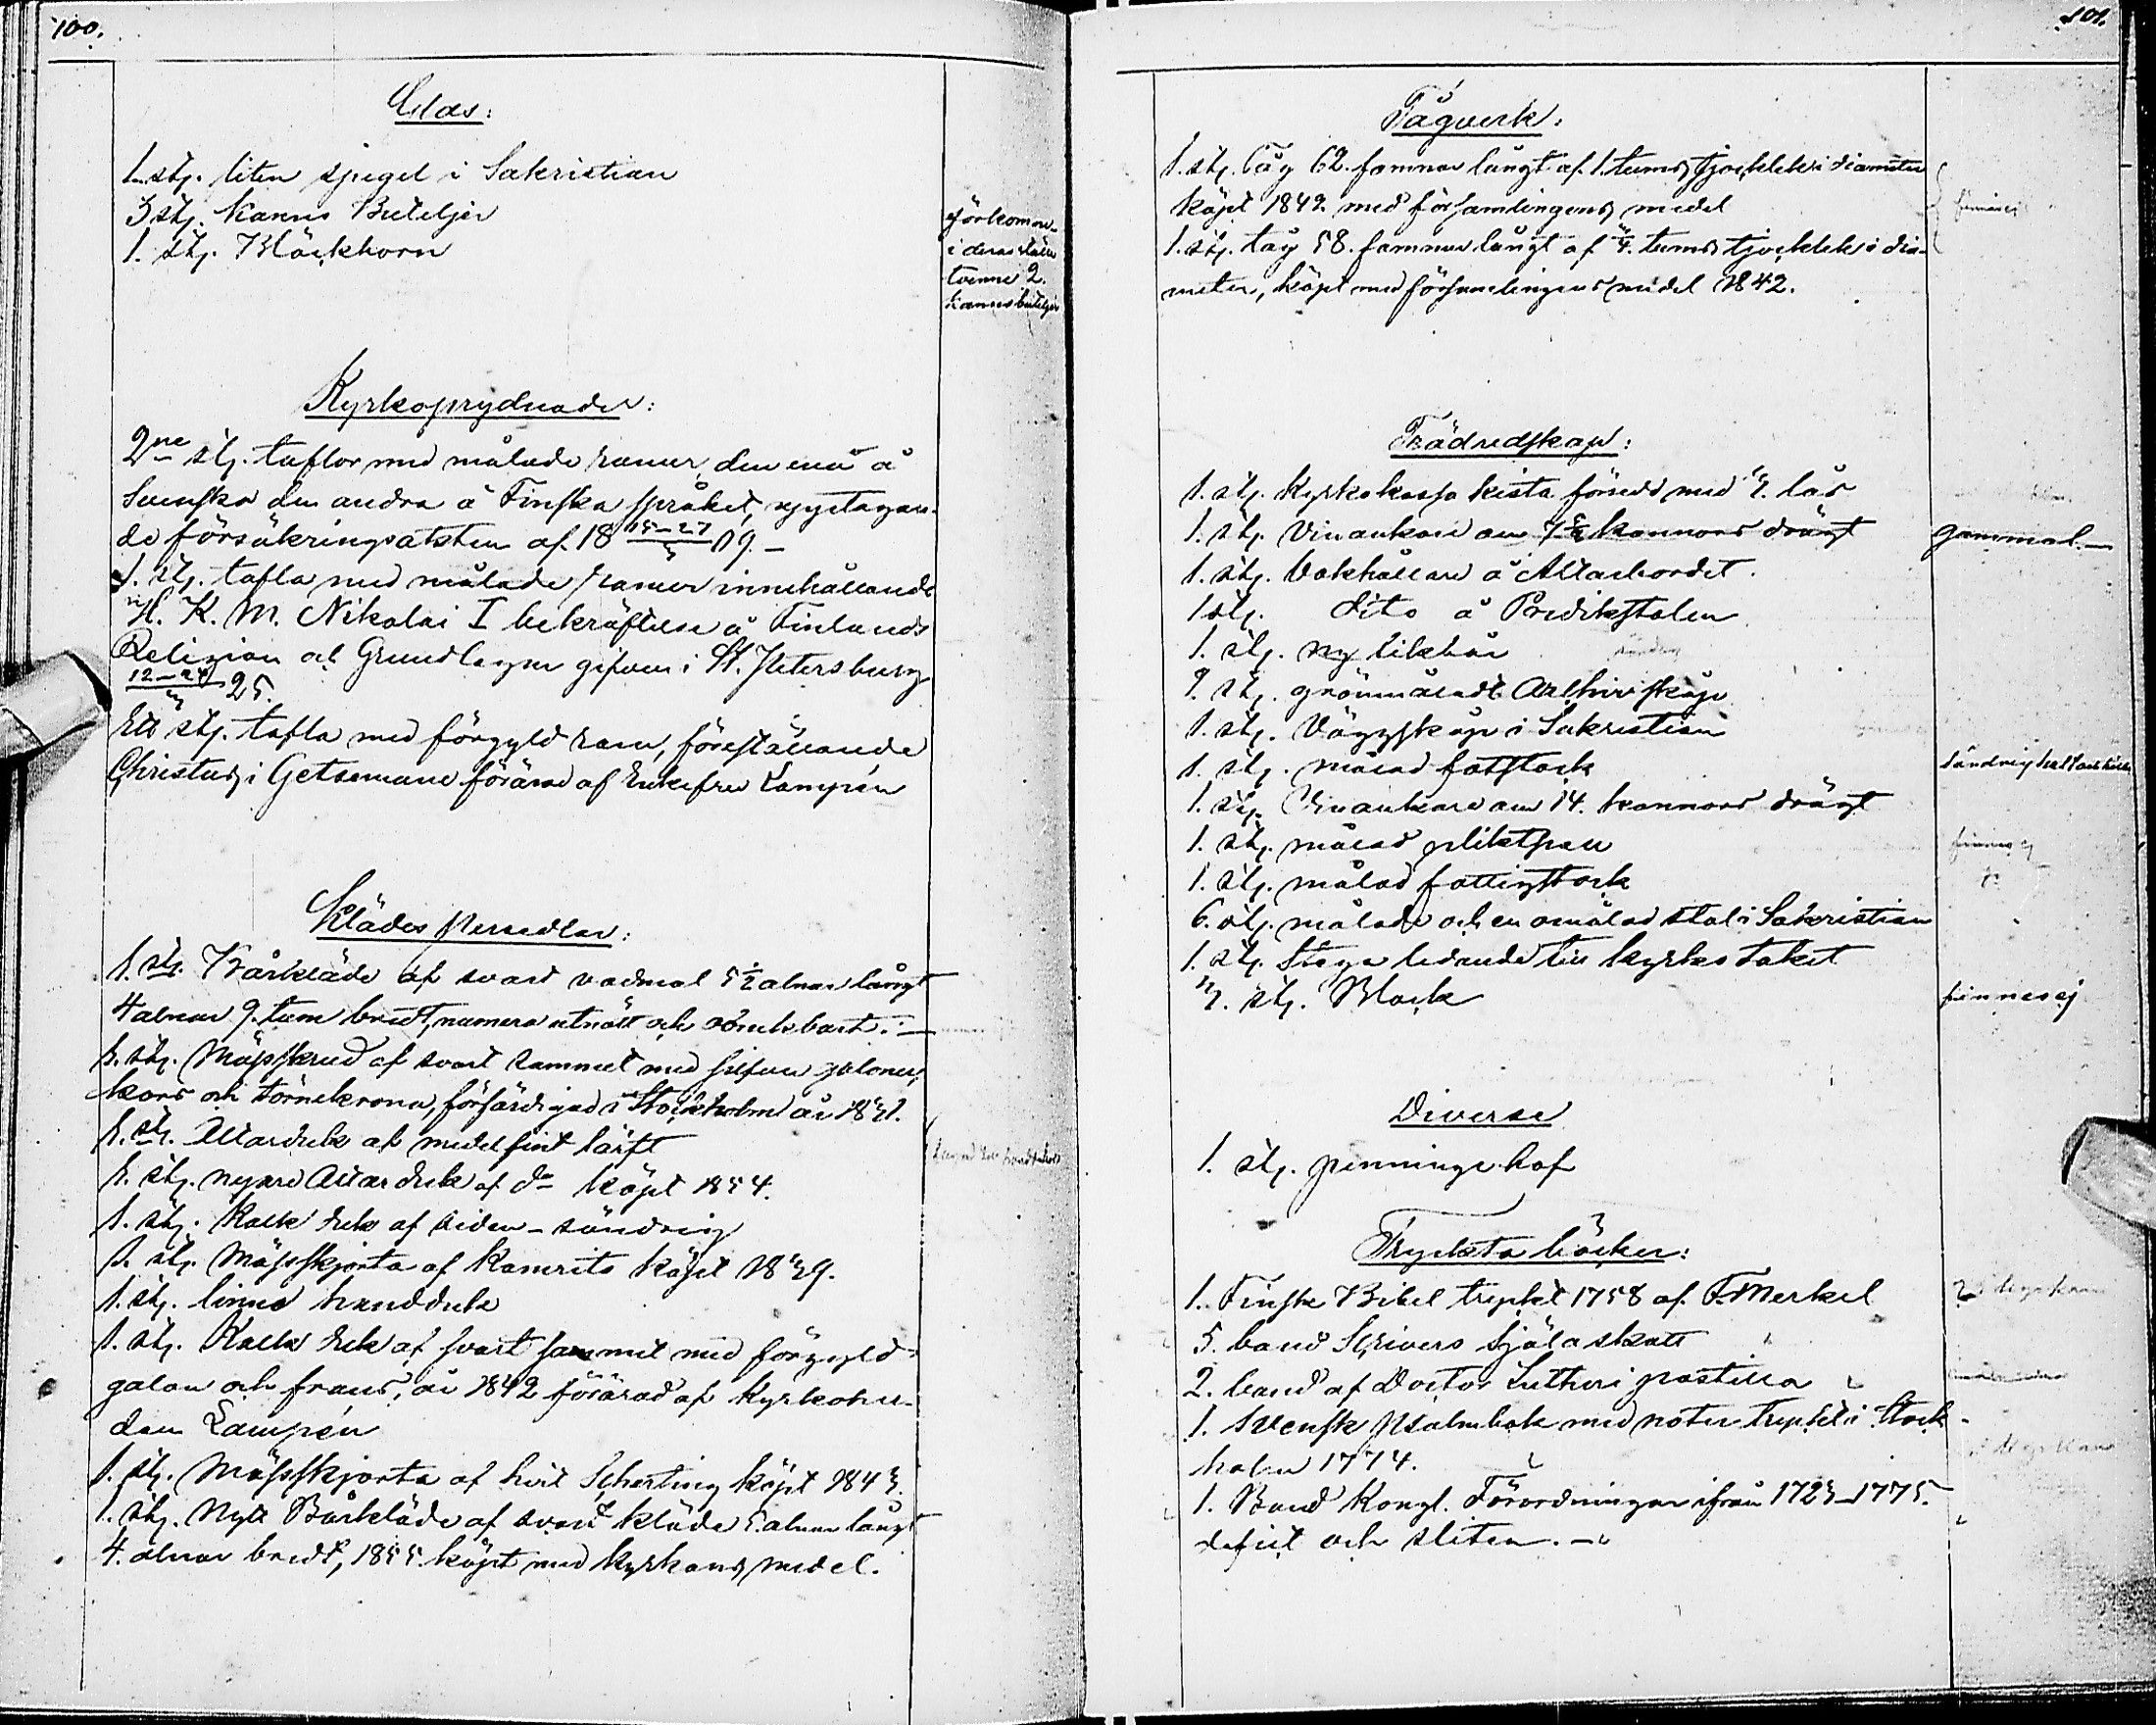 100.
Glas:
1. stj. liten spegel i Sakristian
3 stj. Kanns Buteljer
1. stj. Bläckhorn
förkomne
i deras ställe
tvenne 2.
kannsbuteljer
Kyrkoprydnader:
2ne stj. taflor med målade ramar, den ena å
Svenska den andra å Finska språket, upptagan-
de försäkringsakten af 18 15–27/3 09.–
1. stj. tafla med målade ramar innehållande
H. K. M. Nikolai I bekräftelse å Finlands
Religion och Grundlagar gifven i St. Petersburg
12–24 25.
Ett stj. tafla med förgyld ram, föreställande
Christus i Getsemane förärad af Enkefru Lampén
Klädes persedlar:
1. stj. Bårkläde af svart vadmal 5 1/2 alnar långt
4 alnar 9. tum bredt, numera utnött och obrukbart.–
1. stj. Mässkrud af svart sammet med silfver galoner,
kors och törnekrona, förfärdigad i Stockholm år 1831.
1. stj. Altarduk af medelfint lärft
1. stj. nyare Altarduk af do köpt 1854.
1. stj. Kalk duk af siden – söndrig
1. stj. Mässkjorta af Kamrits köpt 1839.
1. stj. linne handduk
1. stj. Kalk duk af svart sammet med förgyld
galon och frans, år 1842 förärad af Kyrkoher-
den Lampén
1. stj. Mässkjorta af hvit Scherting köpt 1843.
1. stj. Nytt Bårkläde af svart kläde 5. alnar långt
4. alnar bredt, 1855 köpt med kyrkans medel.
101.
Tågverk:
1. stj. Tåg 62. famnar långt af 1. tums tjocklek i diameter
köpt 1842 med församlingens medel
finnes ej
1. stj. tåg 58. famnar långt af 3/4. tums tjocklek i dia-
meter, köpt med församlingens medel 1842.
Trädredskap:
1. stj. Kyrkokassa kista försedd med 3. lås
1. stj. Vinankare om 7 1/2 kannors drägt
gammal.–
1. stj. Bokhållare å Altarbordet.
1 stj. dito å Predikstolen
1. stj. ny likbår
2. stj. grönmåladt Arkhivskåp
1. stj. Väggskåp i Sakristian
1. stj. målad fotstock
1. stj. Vinankare om 14. kannors drägt
1. stj. målad pliktpall
finnes ej
1. stj. målad fattigstock
6. stj. målade och en omålad stol i Sakristian
1. stj. Stege ledande till kyrkotaket
3. stj. Block
finnes ej
Diverse
1. stj. penninge håf
Tryckta böcker:
1. Finsk Bibel tryckt 1758 af F. Merkel
5. band Scrivers Själaskatt
2. band af Doctor Lutheri postilla
1. Svensk Psalmbok med noter tryckt i Stock-
holm 1774.
1. Band Kongl. Förordningar ifrån 1723–1775.
defect och sliten.–